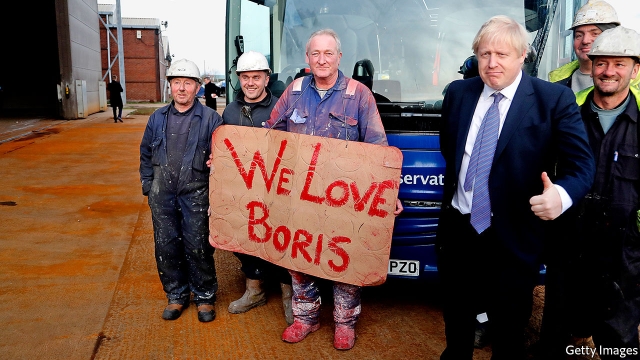 We Love
Boris
servat
PZO
Getty Images